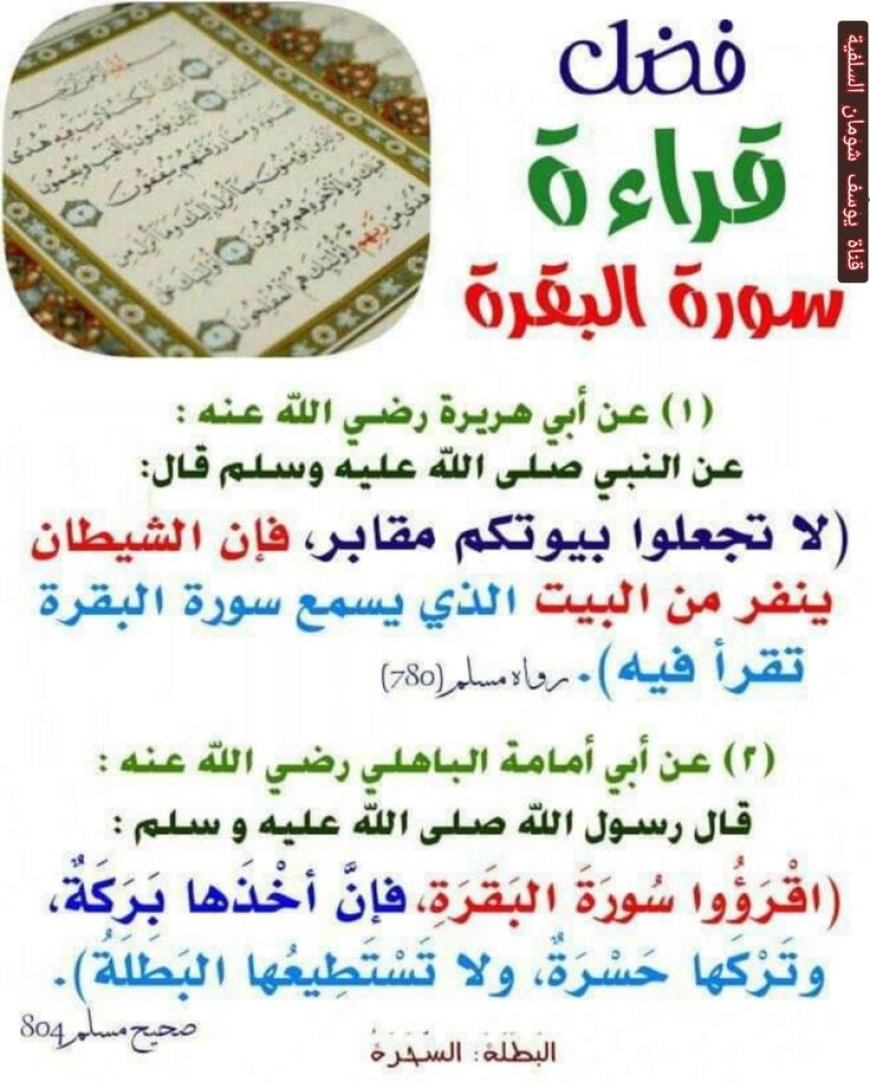 فضل
قراءة
سورة البقرة
قناة يوسف شومان السلفية
(١) عن أبي هريرة رضي الله عنه :
عن النبي صلى الله عليه وسلم قال:
(لا تجعلوا بيوتكم مقابر، فإن الشيطان
ينفر من البيت الذي يسمع سورة البقرة
تقرأ فيه). رواه مسلم (780)
(٢) عن أبي أمامة الباهلي رضي الله عنه :
قال رسول الله صلى الله عليه و سلم :
(اقْرَؤُوا سُورَةَ البَقَرَةِ، فإنَّ أخْذَها بَرَكَةٌ،
وتَرْكَها حَسْرَةٌ، ولا تَسْتَطِيعُها البَطَلَةُ).
صحيح مسلم 804
البَطَلَة: السَّحَرَةُ